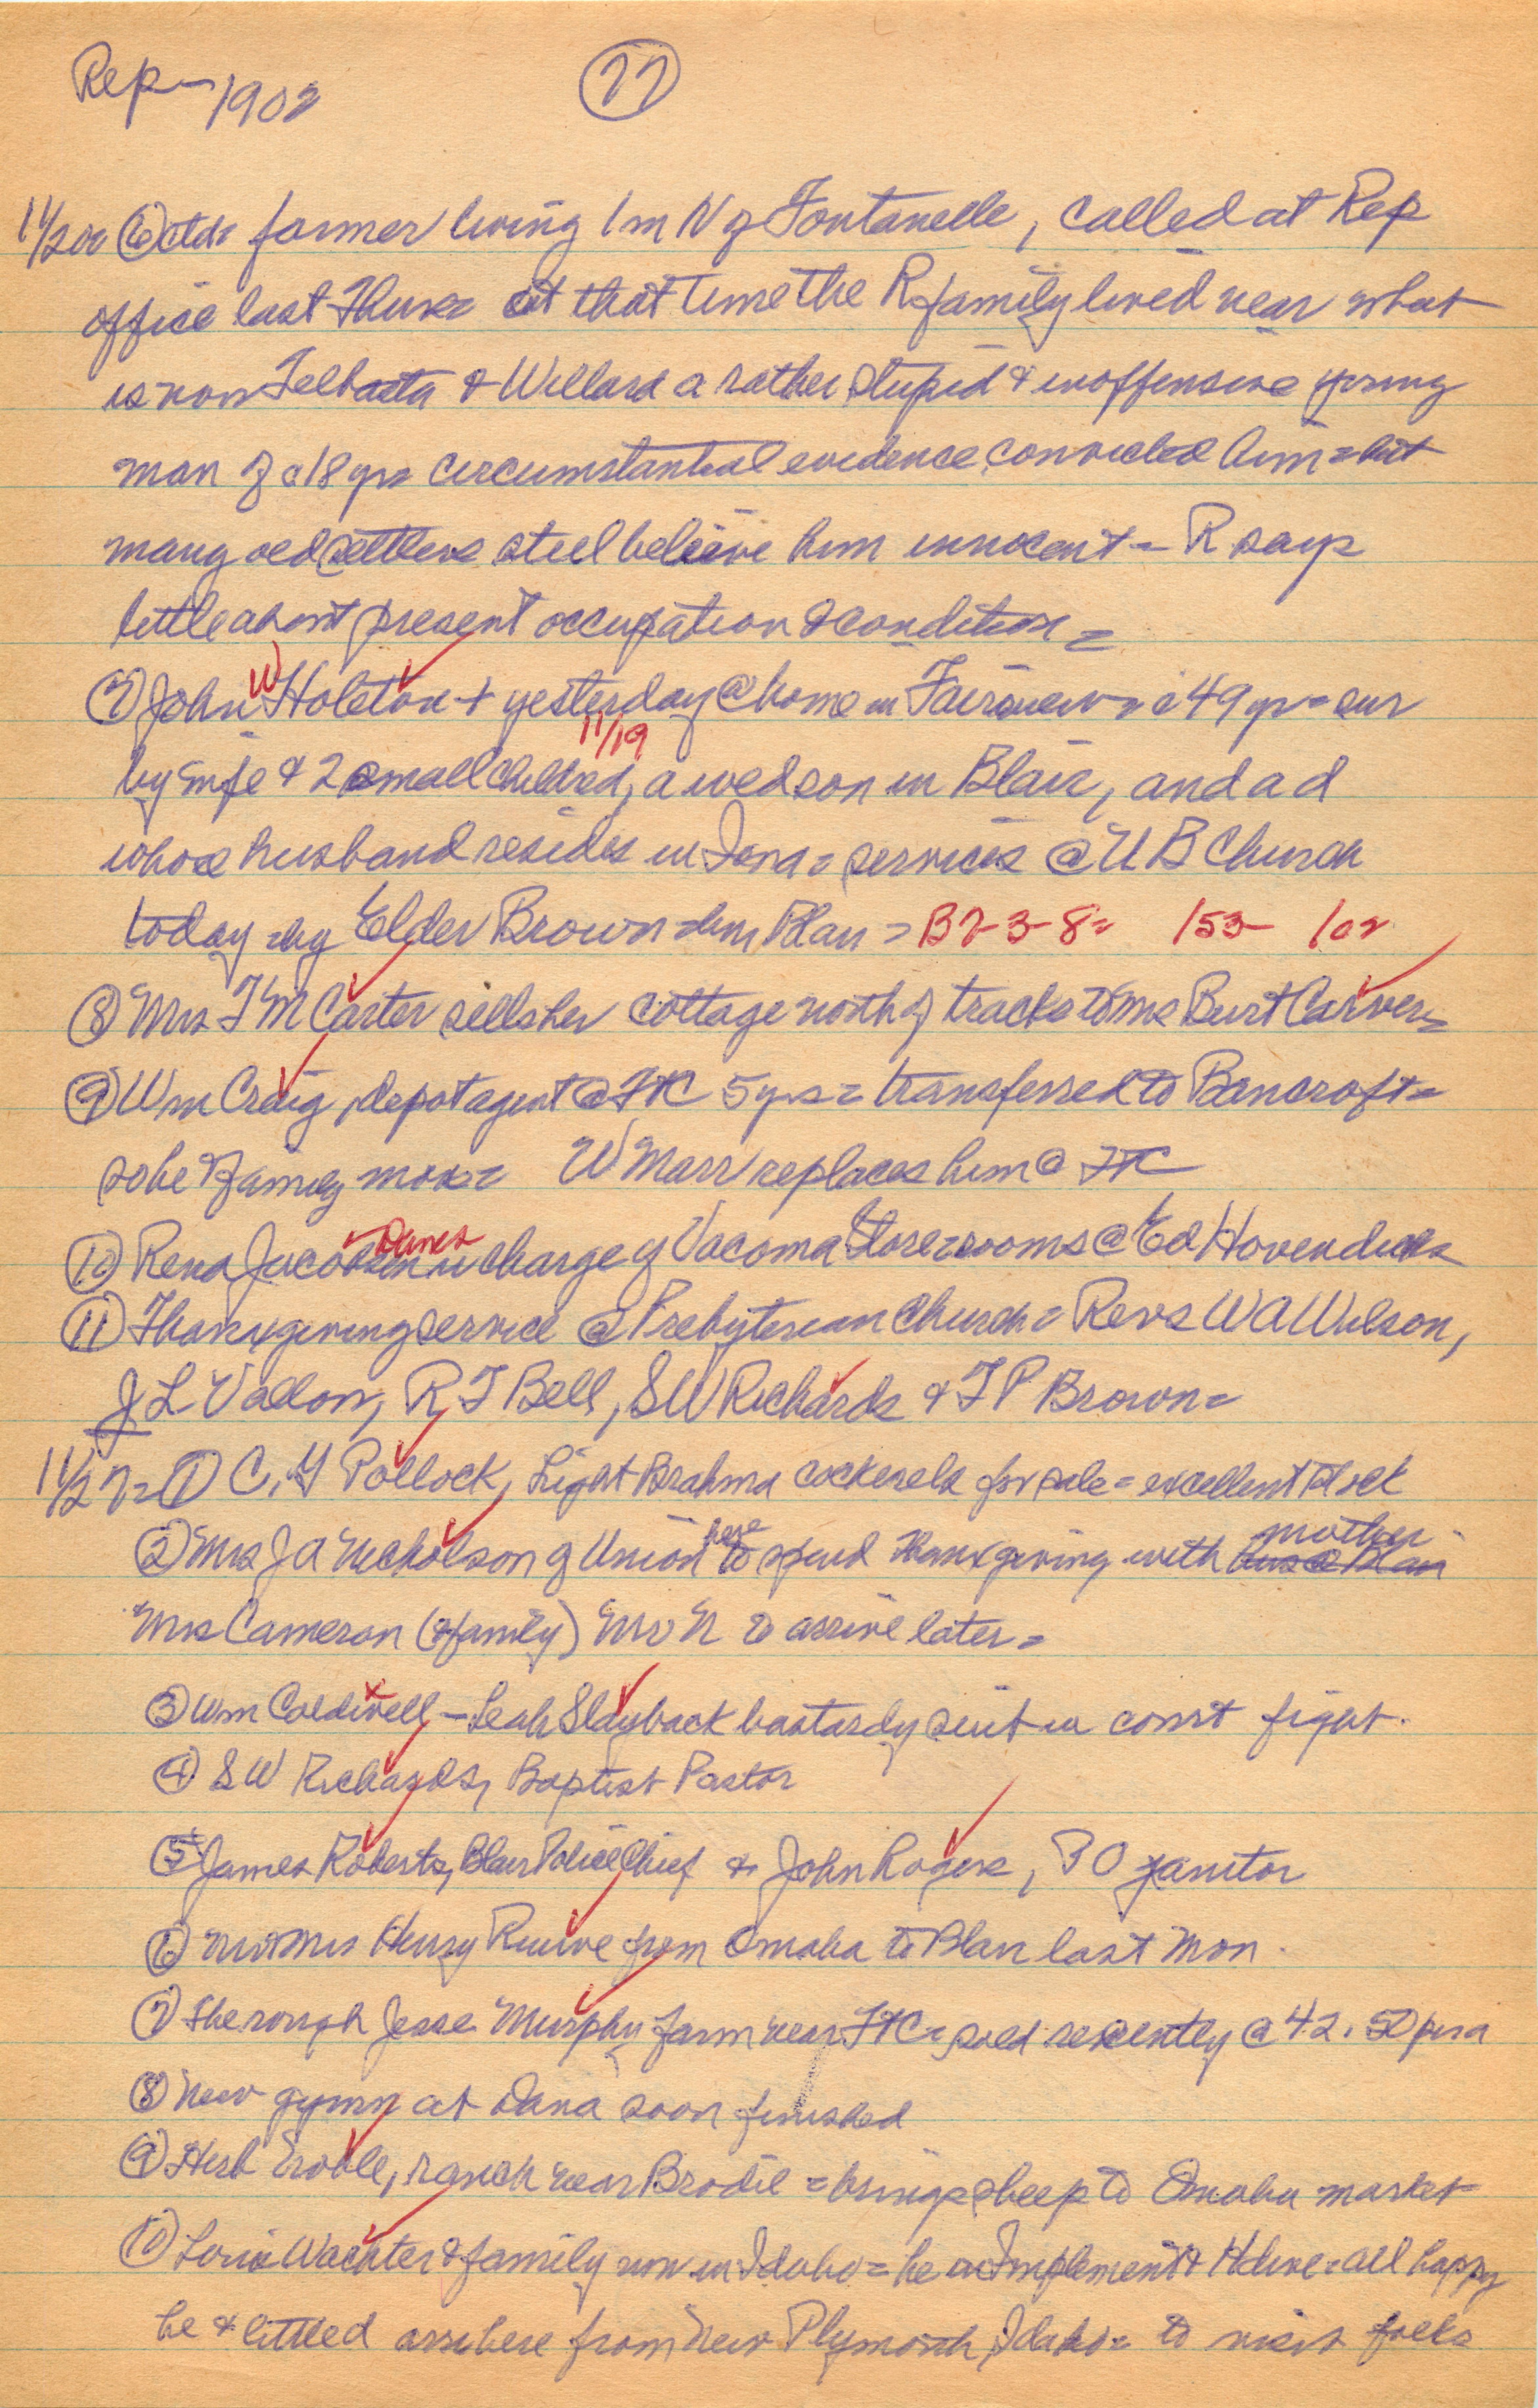 Rep- 1902
77
11/20= ⑥ ctd= farmer living 1 m N of Fontanelle, called at Rep
office last Thurs= at that time the R family lived near what
is now Telbasta & Willard a rather stupid & inoffensive young
man of a 18 yrs circumstantial evidence convicted him = but
many old settlers still believe him innocent = R says
little about present occupation & condition =
⑦ John W Holston + yesterday @ home in Fairview = a 49 yr = sur
11/19
by wife & 2 small children, a wed son in Blair, and a d
whose husband resides in Iowa = services @ U B Church
today by Elder Brown = bur Blair = B2-3-8= 153- 102
⑧ Mrs T M Carter sells her cottage north of tracks to Mrs Burt Carver=
⑨ Wm Craig, depot agent @ FTC 5 yrs = transferred to Bancroft=
so he & family move= W Marr replaces him @ FTC
Danes
⑩ Rena Jacobsen in charge of Vacoma Store = rooms @ Ed Hovendicks
⑪ Thanxgiving service @ Presbyterian Church = Revs W A Wilson,
J L Vallow, R T Bell, S W Richards & T P Brown=
11/27= ① C. Y Pollock, Light Brahma cockerels for sale = excellent stock
② Mrs J A Nicholson of Union here to spend Thanxgiving with mother
Mrs Cameron (& family) Mr N to arrive later=
③ Wm Caldwell - Leah Slayback bastardy suit in court fight.
④ S W Richards, Baptist Pastor
⑤ James Roberts, Blair Police Chief & John Rogers, P O janitor
⑥ Mr & Mrs Henry from Omaha to Blair last Mon.
⑦ The rough Jesse Murphy farm near FTC = sold recently @ 42.50 per a
⑧ New gymn at Dana soon finished
⑨ Herb ranch near = brings sheep to Omaha market
⑩ Wachter & family now in Idaho = he in Implement & Hdwe = all happy
he & little d arr here from New Plymouth, Idaho= to visit folks